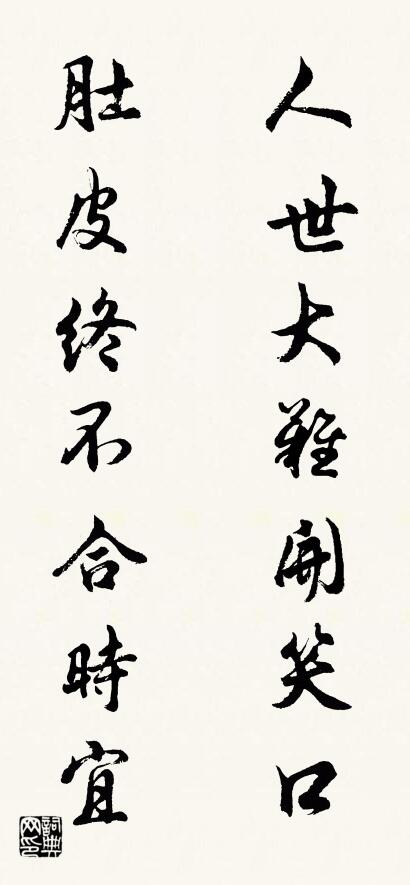 人世大難開笑口
肚皮終不合時宜
詞典網印